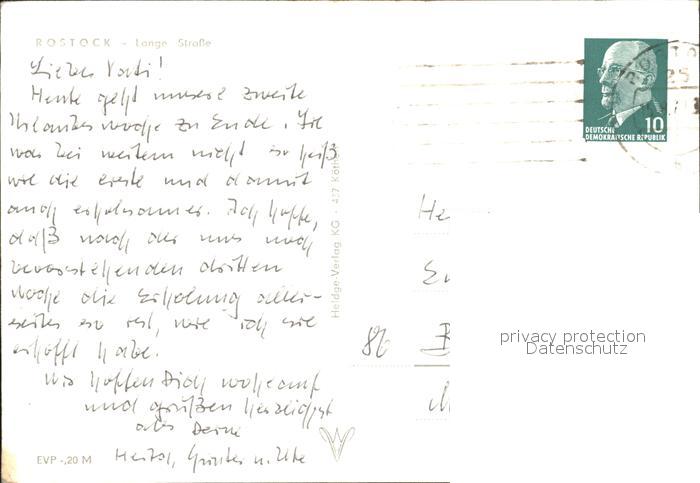 ROSTOCK - Lange Straße
Lieber Vati!
Heute geht unsere zweite
Urlaubswoche zu Ende. Sie
war bei weitem nicht so heiß
wie die erste und damit
auch erholsamer. Ich hoffe,
daß nach der uns noch
bevorstehenden dritten
Woche die Erholung aller-
seits so ist, wie ich sie
erhofft habe.
Wir hoffen Dich wohlauf
und grüßen herzlichst
als Deine
Günter u. Ute
EVP -,20 M
Heldge-Verlag KG · 437 Köthen
DEUTSCHE
DEMOKRATISCHE REPUBLIK
10
86
privacy protection
Datenschutz